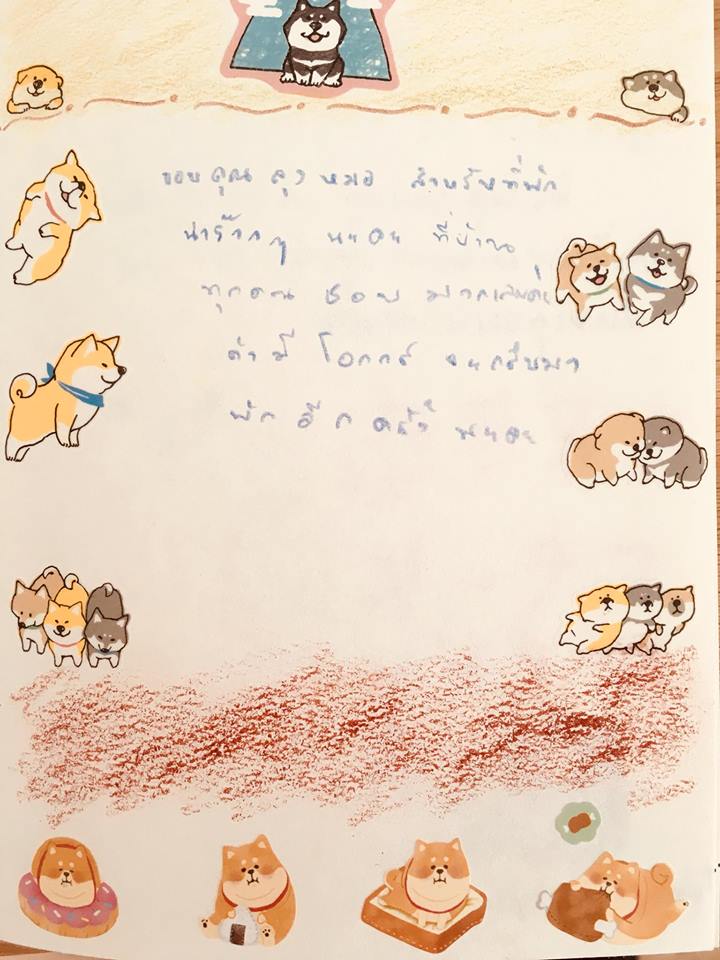 ขอบคุณ ลุง หมอ สำหรับที่พัก
น่ารักๆ นะคะ ที่บ้าน
ทุกคน ชอบ มากเลยค่ะ
ถ้ามี โอกาส จะกลับมา
พัก อีก ครั้ง นะคะ